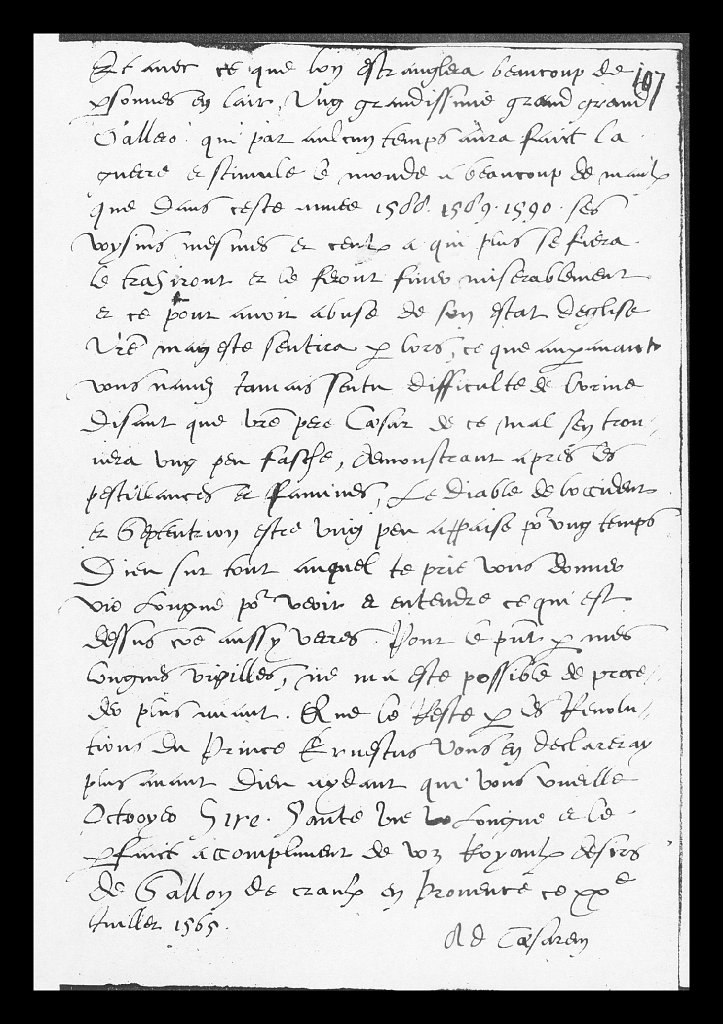 Et avec ce que lon estranglera beaucoup de
107
personnes en lair, Ung grandissime grand grand
Gallero qui par aulcun temps aura faict la
guerre et stimule le monde a beaucoup de maulx
que dans ceste annee 1588. 1589. 1590. ses
voysins mesmes et ceulx a qui plus se fiera
le trahiront et le feront finer miserablement
et ce pour avoir abuse de son estat deglise
Vre mageste sentira per lors, ce que auparavant
vous navez jamais sentu difficulte de
disant que vre pere Cæsar de ce mal sen trou-
vera ung peu fasche, demonstrant apres les
pestillances et famines, Le Diable de loccident
et Septentrion estre ung peu appaise pr ung temps
Dieu sur tout auquel je prie vous donner
vie longue pr veoir et entendre ce qui est
dessus coe aussy verres. Pour le pnt per mes
longues vigilles, ne ma este possible de proce-
der plus avant. Que le Reste per les Revolu-
tions du Prince Ernestus vous en declareray
plus avant Dieu aydant qui vous vueille
Octroyer Sire. Sante vie longue et le
perfaict accompliment de voz Royaulx desirs
de Sallon de craulx en Provence ce xxe
Juillet 1565.
Ad Cæsarem